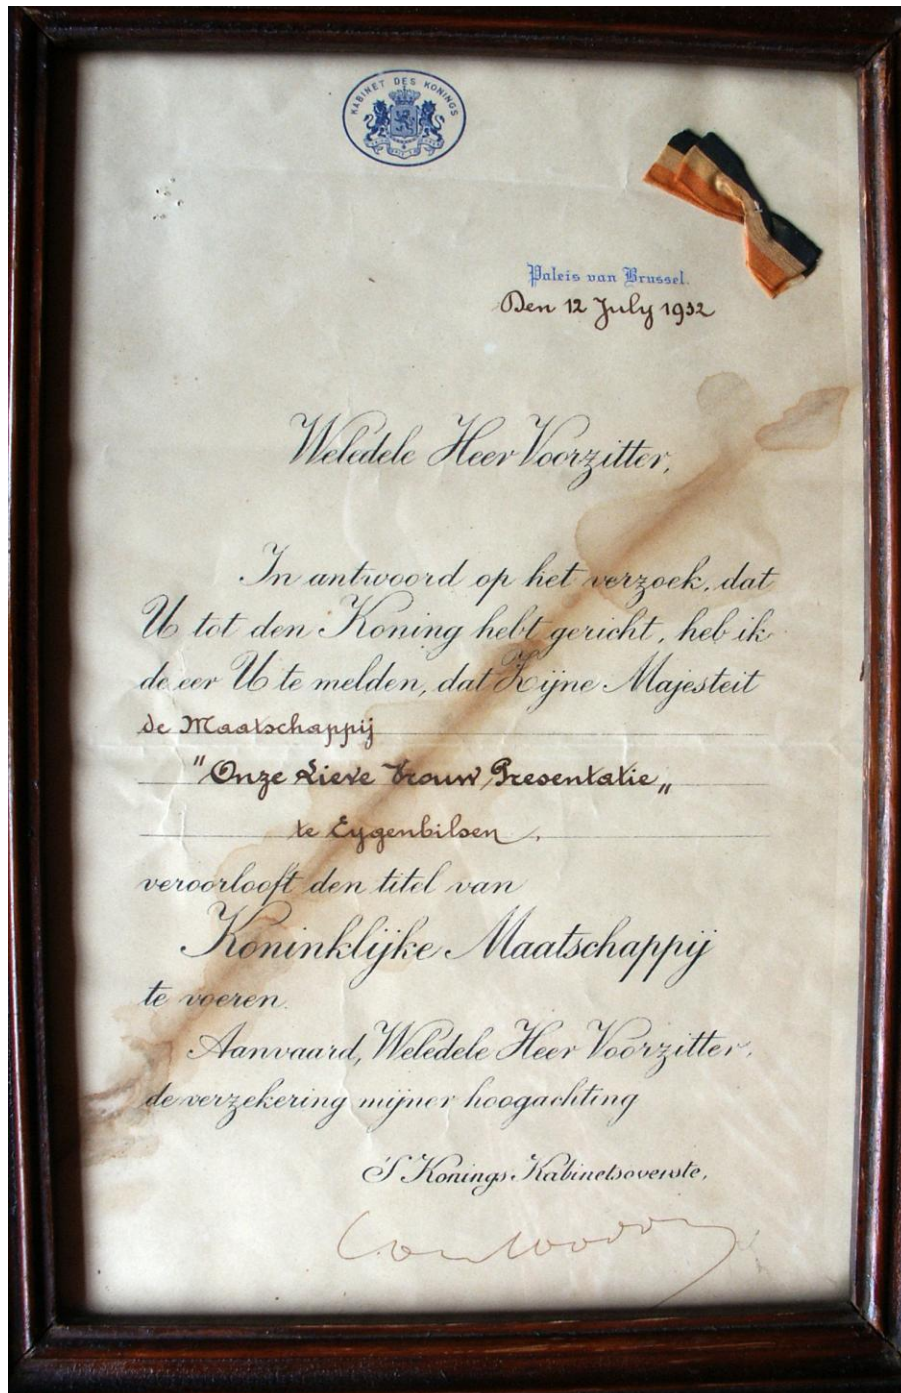 KABINET DES KONINGS
Paleis van Brussel.
Den 12 July 1932
Weledele Heer Voorzitter,
In antwoord op het verzoek, dat
U tot den Koning hebt gericht, heb ik
de eer U te melden, dat Zijne Majesteit
de Maatschappij
"Onze Lieve Vrouw Presentatie„
te Eygenbilsen.
veroorlooft den titel van
Koninklijke Maatschappij
te voeren.
Aanvaard, Weledele Heer Voorzitter,
de verzekering mijner hoogachting
'S Konings Kabinetsoverste,